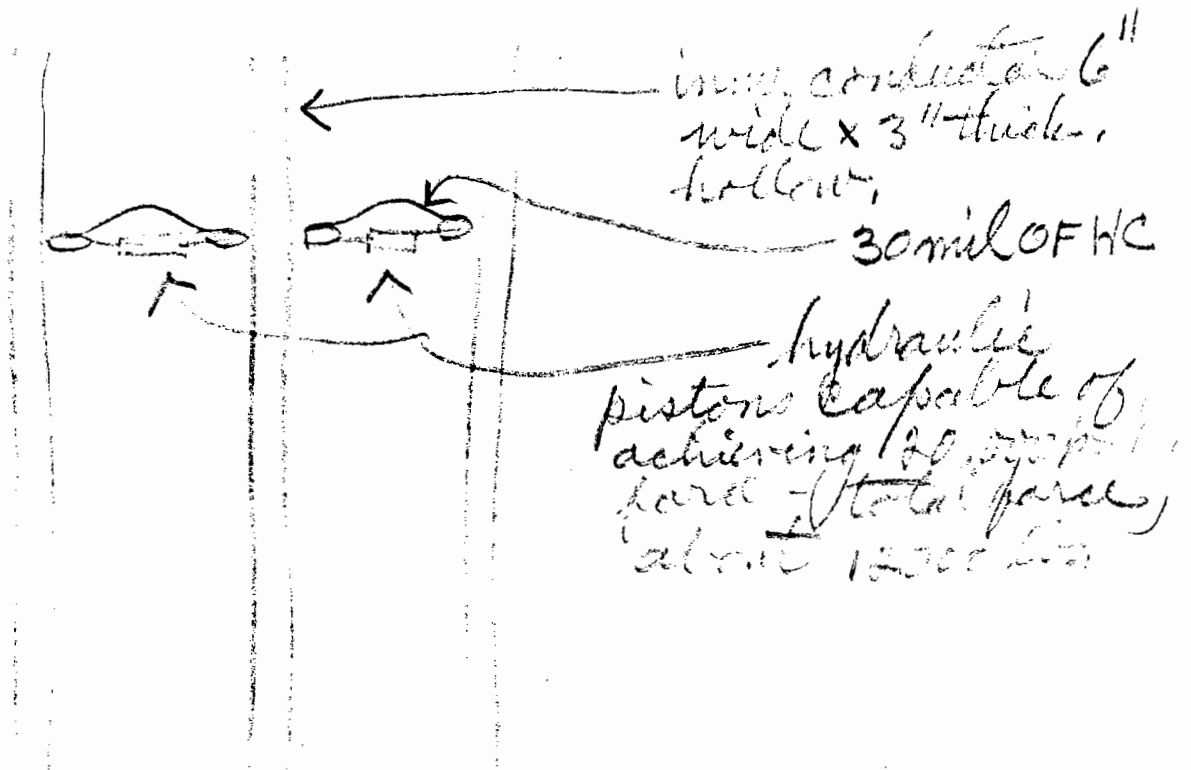 inner conductor 6"
wide x 3" thick,
hollow,
30 mil OFHC
hydraulic
pistons capable of
achieving
total force,
about